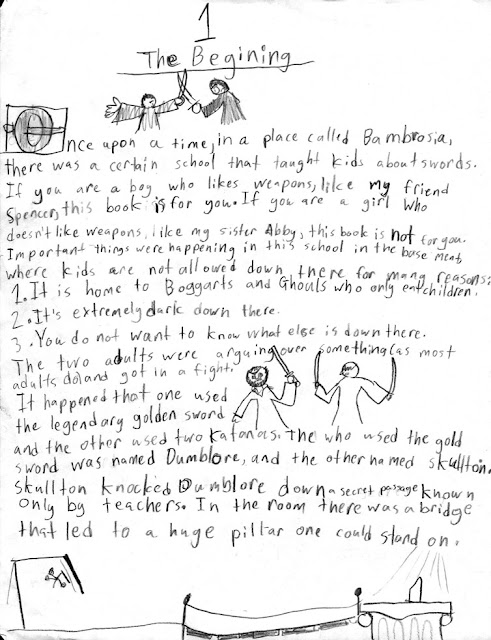 1
The Begining
Once upon a time, in a place called Bambrosia,
there was a certain school that taught kids about swords.
If you are a boy who likes weapons, like my friend
Spencer, this book is for you. If you are a girl who
doesn't like weapons, like my sister Abby, this book is not for you.
Important things were happening in this school in the base ment,
where kids are not allowed down there for many reasons:
1. It is home to Boggarts and Ghouls who only eat children.
2. It's extremely dark down there.
3. You do not want to know what else is down there.
The two adults were arguing over something (as most
adults do) and got in a fight.
It happened that one used
the legendary golden sword
and the other used two katanas. The who used the gold
sword was named Dumblore, and the other named skullton.
skullton knocked Dumblore down a secret passage known
only by teachers. In the room there was a bridge
that led to a huge pillar one could stand on.